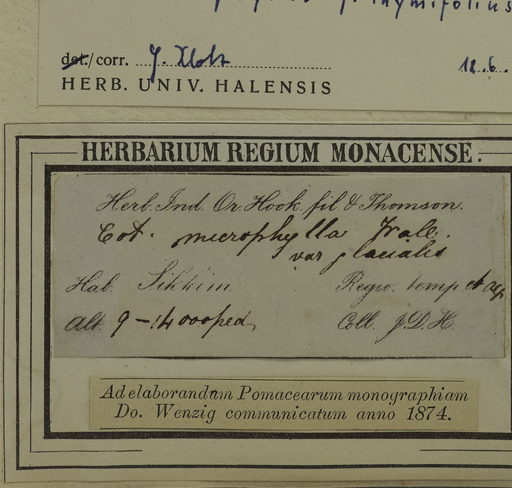 thymifolius
det./corr. J. Klotz 12.6.
HERB. UNIV. HALENSIS
HERBARIUM REGIUM MONACENSE.
Herb. Ind. Or. Hook. fil & Thomson.
Cot. microphylla Wall.
var glacialis
Hab. Sikkim Regio. temp et alp
Alt. 9 - 14000 ped. Coll. J.D.H.
Ad elaborandam Pomacearum monographiam
Do. Wenzig communicatum anno 1874.